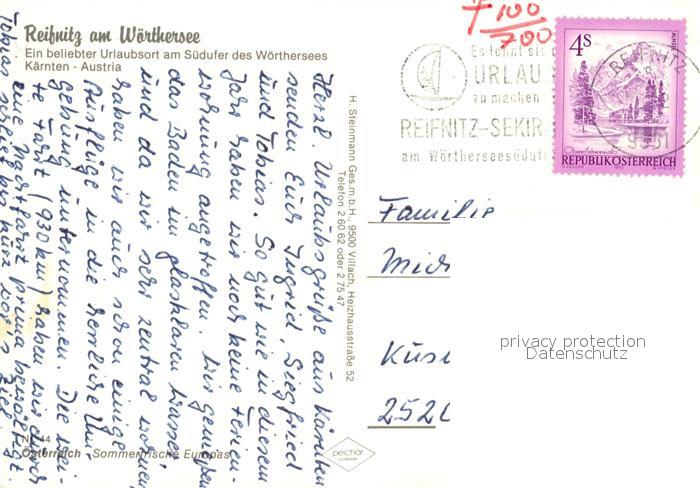 Reifnitz am Wörthersee
Ein beliebter Urlaubsort am Südufer des Wörthersees
Kärnten - Austria
7 100
700
Es lohnt sic
URLAU
zu machen
REIFNITZ-SEKIR
am Wörtherseesüduf
REIFNITZ
9081
4S
REPUBLIK ÖSTERREICH
Herzl. Urlaubsgrüße aus Kärnten
senden Euch Ingrid, Siegfried
und Tobias. So gut wie in diesem
Jahr haben wir noch keine Ferien-
wohnung angetroffen. Wir genießen
das Baden im glasklaren Wasser
und da wir sehr zentral wohnen
haben wir auch schon einige
Ausflüge in die herrliche Um-
gebung unternommen. Die wei-
te Fahrt (930 km) haben wir durch
eine Nachtfahrt prima bewältigt.
Tobias schlief bis kurz vor's Ziel
H. Steinmann Ges.m.b.H., 9500 Villach, Heizhausstraße 52
Telefon 2 60 62 oder 2 75 47
Familie
Mich
Küse
252
privacy protection
Datenschutz
Nr. 44
Österreich - Sommerfrische Europas